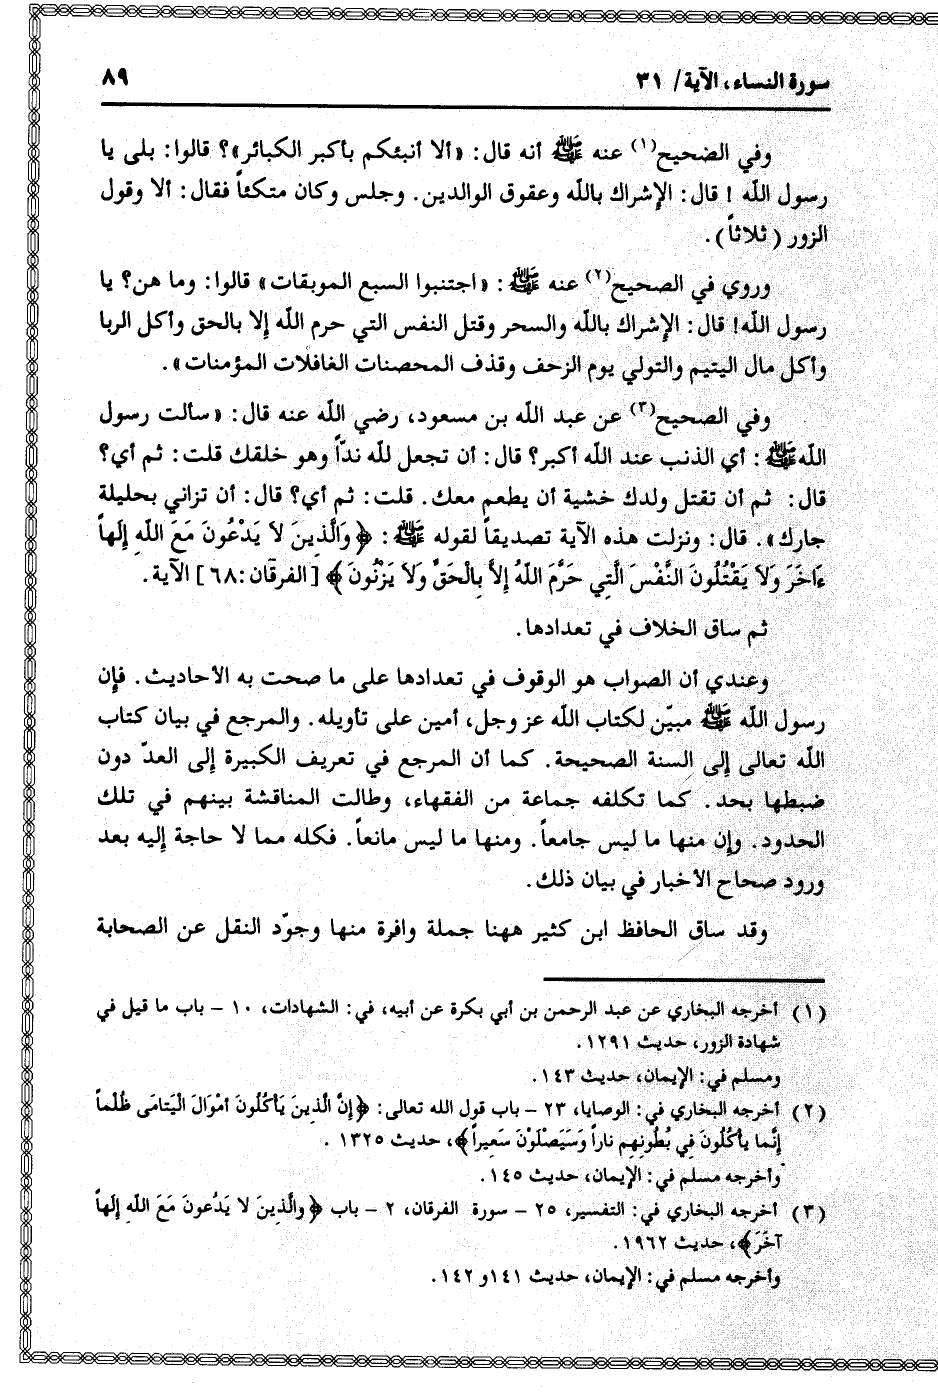 سورة النساء، الآية/ ٣١
٨٩
وفي الصحيح(١) عنه ﷺ أنه قال: «ألا أنبئكم بأكبر الكبائر»؟ قالوا: بلى يا
رسول الله ! قال: الإشراك بالله وعقوق الوالدين. وجلس وكان متكئاً فقال: ألا وقول
الزور (ثلاثاً).
وروي في الصحيح(٢) عنه ﷺ: «اجتنبوا السبع الموبقات» قالوا: وما هن؟ يا
رسول الله! قال: الإشراك بالله والسحر وقتل النفس التي حرم الله إلا بالحق وأكل الربا
وأكل مال اليتيم والتولي يوم الزحف وقذف المحصنات الغافلات المؤمنات».
وفي الصحيح(٣) عن عبد الله بن مسعود، رضي الله عنه قال: «سألت رسول
الله ﷺ: أي الذنب عند الله أكبر؟ قال: أن تجعل لله ندّاً وهو خلقك قلت: ثم أي؟
قال: ثم أن تقتل ولدك خشية أن يطعم معك. قلت: ثم أي؟ قال: أن تزاني بحليلة
جارك». قال: ونزلت هذه الآية تصديقاً لقوله ﷺ: ﴿وَالَّذِينَ لاَ يَدْعُونَ مَعَ اللهِ إِلَهاً
ءَاخَرَ وَلاَ يَقْتُلُونَ النَّفْسَ الَّتِي حَرَّمَ اللهُ إِلاَّ بِالْحَقِّ وَلاَ يَزْنُونَ﴾ [الفرقان:٦٨] الآية.
ثم ساق الخلاف في تعدادها.
وعندي أن الصواب هو الوقوف في تعدادها على ما صحت به الأحاديث. فإن
رسول الله ﷺ مبيّن لكتاب الله عز وجل، أمين على تأويله. والمرجع في بيان كتاب
الله تعالى إلى السنة الصحيحة. كما أن المرجع في تعريف الكبيرة إلى العدّ دون
ضبطها بحد. كما تكلفه جماعة من الفقهاء، وطالت المناقشة بينهم في تلك
الحدود. وإن منها ما ليس جامعاً. ومنها ما ليس مانعاً. فكله مما لا حاجة إليه بعد
ورود صحاح الأخبار في بيان ذلك.
وقد ساق الحافظ ابن كثير ههنا جملة وافرة منها وجوّد النقل عن الصحابة
(١) أخرجه البخاري عن عبد الرحمن بن أبي بكرة عن أبيه، في: الشهادات، ١٠ – باب ما قيل في
شهادة الزور، حديث ١٢٩١.
ومسلم في: الإيمان، حديث ١٤٣.
(٢) أخرجه البخاري في: الوصايا، ٢٣ – باب قول الله تعالى: ﴿إِنَّ الَّذِينَ يَأكُلُونَ أمْوَالَ الْيَتامَى ظُلْماً
إنَّما يأكُلُونَ فِي بُطُونِهِم ناراً وَسَيَصْلَوْنَ سَعِيراً﴾، حديث ١٣٢٥ .
وأخرجه مسلم في: الإيمان، حديث ١٤٥.
(٣) أخرجه البخاري في: التفسير، ٢٥ – سورة الفرقان، ٢ – باب ﴿والَّذِينَ لا يَدْعونَ مَعَ اللهِ إلَهاً
آخَرَ﴾، حديث ١٩٦٢.
وأخرجه مسلم في: الإيمان، حديث ١٤١و ١٤٢.